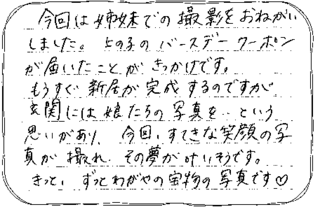 今回は姉妹での撮影をおねがい
しました。上の子のバースデークーポン
が届いたことがきっかけです。
もうすぐ新居が完成するのですが
玄関には娘たちの写真を という
思いがあり、今回、すてきな笑顔の写
真が撮れ、その夢が叶いそうです。
きっと、ずっとわがやの宝物の写真です♡